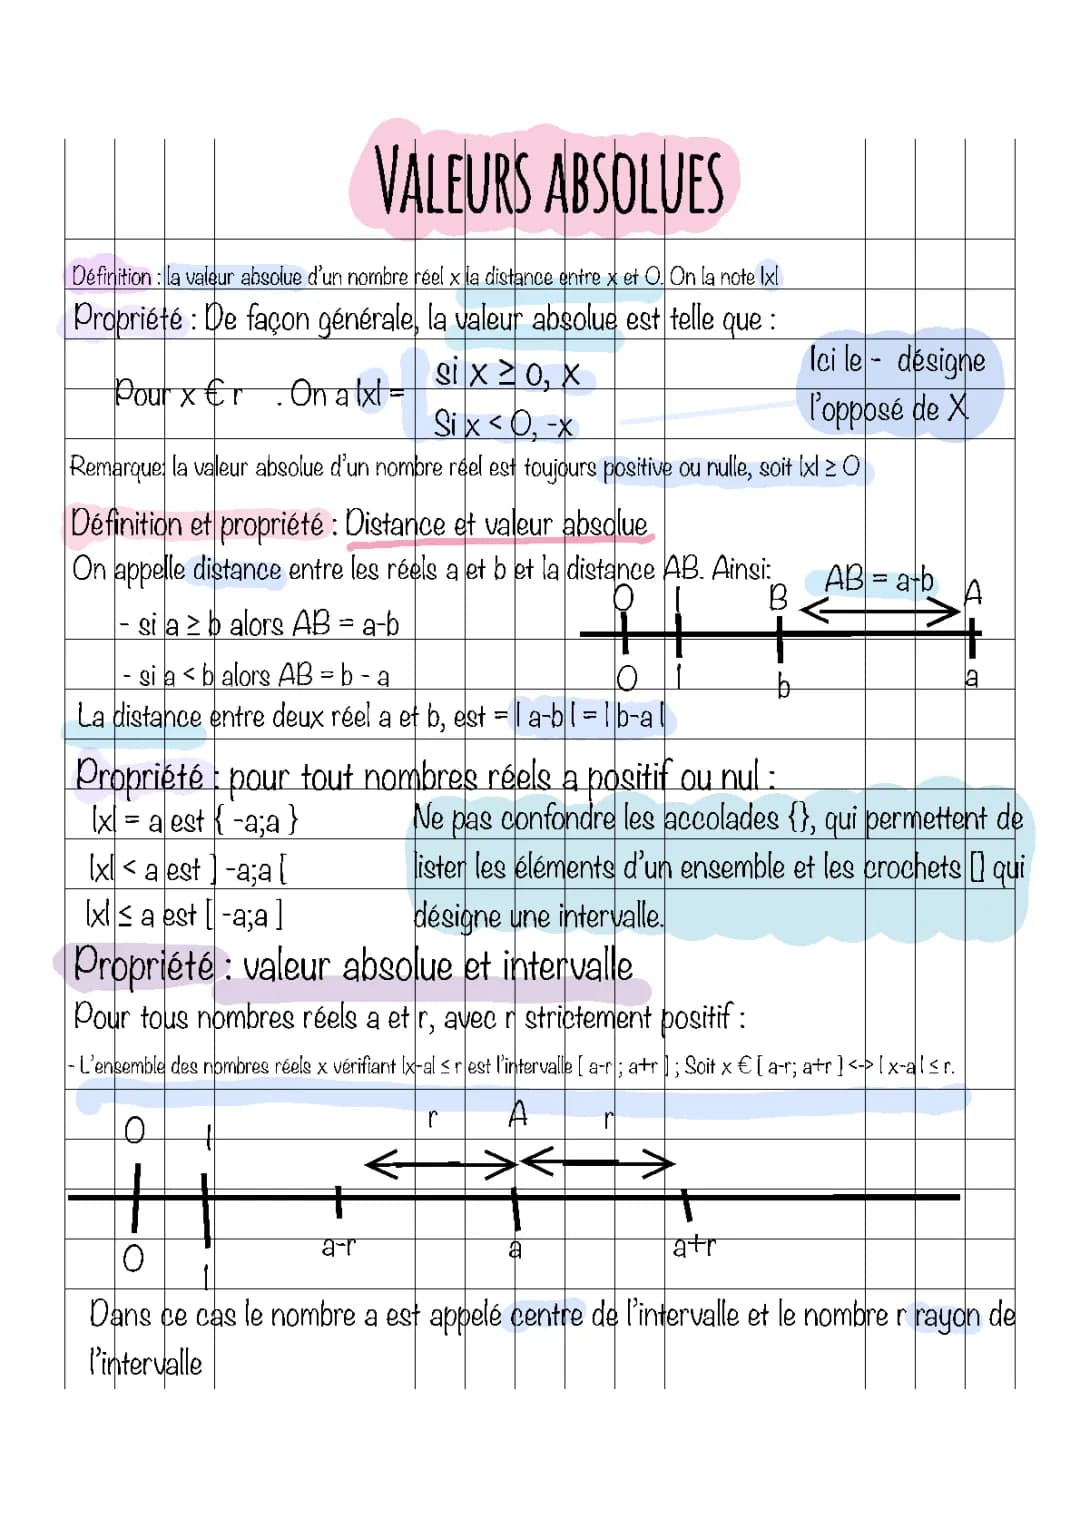 VALEURS ABSOLUES
Définition : la valeur absolue d'un nombre réel x la distance entre x et 0. On la note |x|
Propriété : De façon générale, la valeur absolue est telle que :
Pour x € r . On a |x| =
si x ≥ 0, x
Si x < 0, -x
Ici le - désigne
l'opposé de X
Remarque: la valeur absolue d'un nombre réel est toujours positive ou nulle, soit |x| ≥ 0
Définition et propriété : Distance et valeur absolue
On appelle distance entre les réels a et b et la distance AB. Ainsi:
AB = a-b
O I B A
- si a ≥ b alors AB = a-b
- si a < b alors AB = b - a
0 1 b a
La distance entre deux réel a et b, est = | a-b | = | b-a |
Propriété : pour tout nombres réels a positif ou nul :
|x| = a est { -a;a }
|x| < a est ] -a;a [
|x| ≤ a est [ -a;a ]
Ne pas confondre les accolades {}, qui permettent de
lister les éléments d'un ensemble et les crochets [] qui
désigne une intervalle.
Propriété : valeur absolue et intervalle
Pour tous nombres réels a et r, avec r strictement positif :
- L'ensemble des nombres réels x vérifiant |x-a| ≤ r est l'intervalle [ a-r ; a+r ] ; Soit x € [ a-r; a+r ] <-> | x-a | ≤ r.
O I r A r
0 1 a-r a a+r
Dans ce cas le nombre a est appelé centre de l'intervalle et le nombre r rayon de
l'intervalle